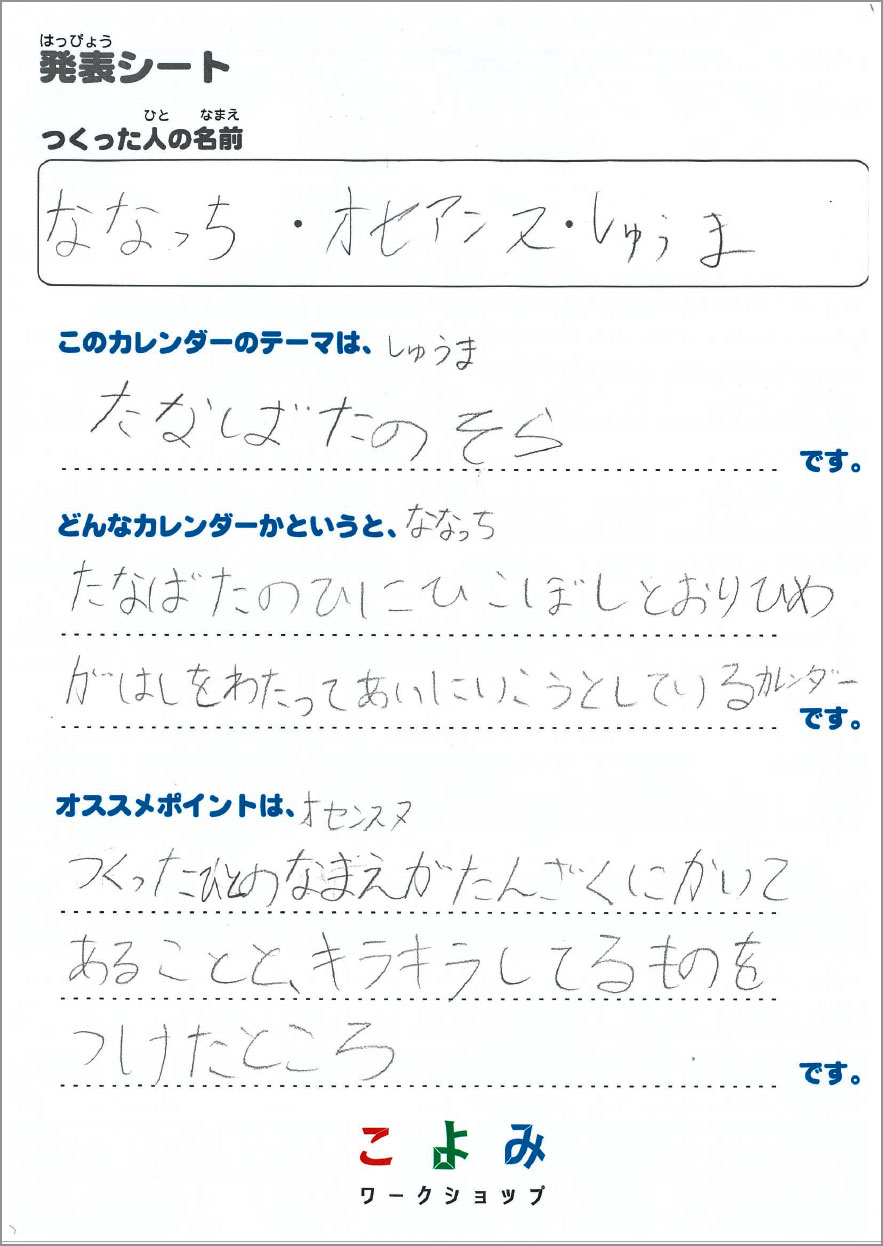 はっぴょう
発表シート
ひと なまえ
つくった人の名前
ななっち ・オセアンヌ・しゅうま
このカレンダーのテーマは、しゅうま
たなしばたのそら
です。
どんなカレンダーかというと、ななっち
たなばたのひにひこぼしとおりひめ
がはしをわたってあいにいこうとしているカレンダー
です。
オススメポイントは、オセンスヌ
つくったひとのなまえがたんざくにかいて
あることと、キラキラしてるものを
つけたところ
です。
こよみ
ワークショップ